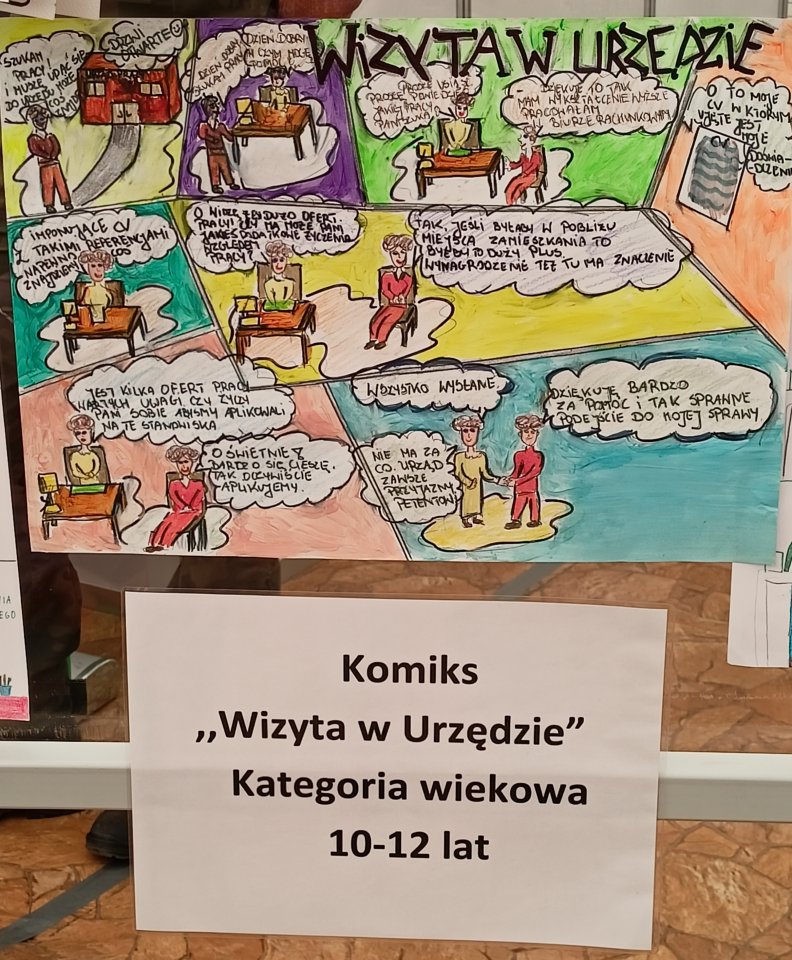 WIZYTA W URZĘDZIE
SZUKAM
PRACY I
I MUSZĘ UDAĆ SIĘ
DO URZĘDU MOŻE
COŚ
DRZWI
OTWARTE
DZIEŃ DOBRY
SZUKAM PRACY
DZIEŃ DOBRY
W CZYM MOGĘ
POMÓC?
PROSZĘ USIĄŚĆ
PROSZĘ POWIEDZIEĆ
JAKIEJ PRACY
PANI SZUKA?
DZIĘKUJĘ TO TAK
MAM WYKSZTAŁCENIE WYŻSZE
PRACOWAŁAM
W BIURZE RACHUNKOWYM
O TO MOJE
CV W KTÓRYM
UJĘTE JEST
MOJE
DOŚWIA-
DCZENIE
CV
IMPONUJĄCE CV
Z TAKIMI REFERENCJAMI
NAPEWNO COŚ
ZNAJDZIEMY
O WIDZĘ ŻE DUŻO OFERT
PRACY! CZY MA MOŻE PANI
JAKIEŚ DODATKOWE ŻYCZENIA
WZGLĘDEM
PRACY?
TAK, JEŚLI BYŁABY W POBLIŻU
MIEJSCA ZAMIESZKANIA TO
BYŁBY TO DUŻY PLUS
WYNAGRODZENIE TEŻ TU MA ZNACZENIE
JEST KILKA OFERT PRACY
WARTYCH UWAGI. CZY ŻYCZY
PANI SOBIE ABYŚMY APLIKOWALI
NA TE STANOWISKA
O ŚWIETNIE
BARDZO SIĘ CIESZĘ.
TAK OCZYWIŚCIE
APLIKUJEMY.
WSZYSTKO WYSŁANE
NIE MA ZA
CO. URZĄD
ZAWSZE
PRZYJAZNY
PETENTOWI
DZIĘKUJĘ BARDZO
ZA POMOC I TAK SPRAWNE
PODEJŚCIE DO MOJEJ SPRAWY
Komiks
,,Wizyta w Urzędzie”
Kategoria wiekowa
10-12 lat